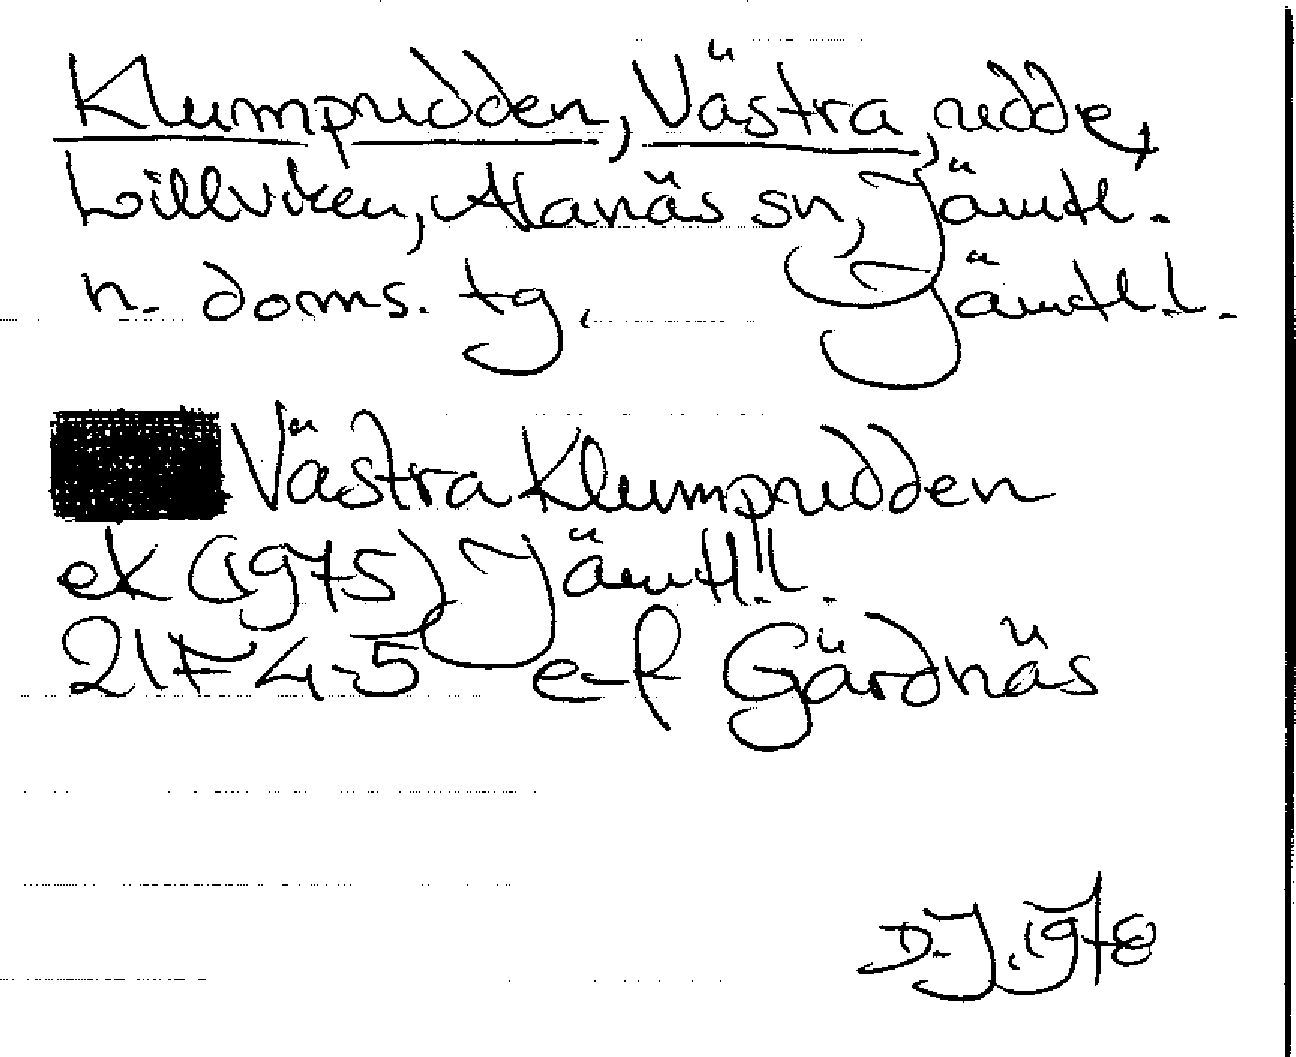 Klumpudden, Västra, udde,
Lillviken, Alanäs sn, Jämtl.
n. doms. tg, Jämtl.l.
Västra Klumpudden
ek (1975) Jämtl.l.
21F 4-5 e-f Gärdnäs
D.J. 1978